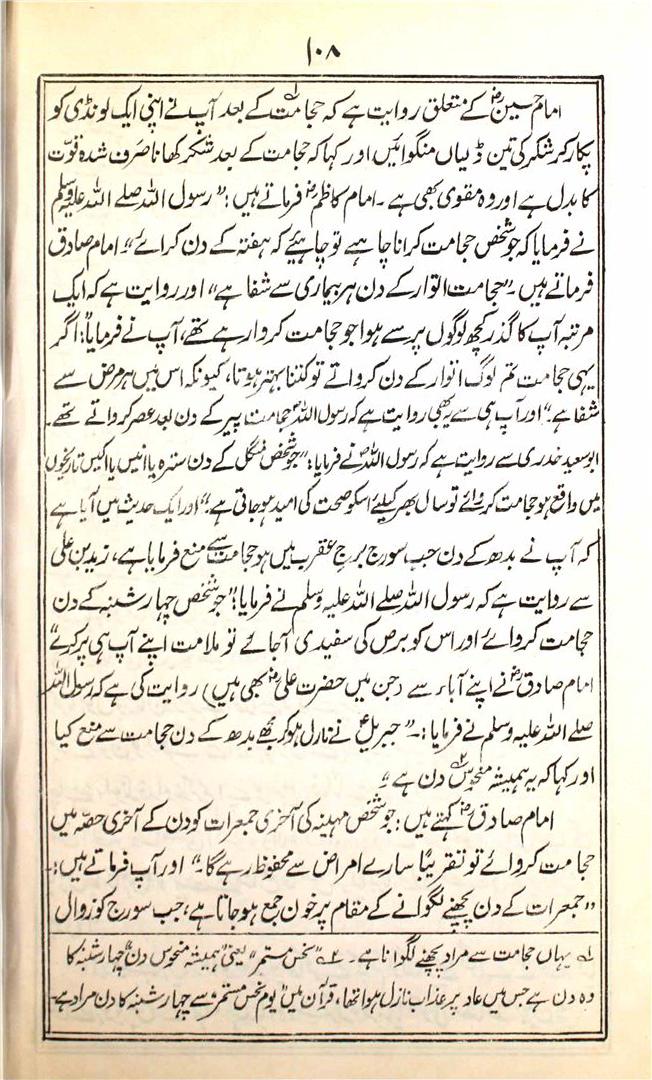 ۱۰۸
امام حسینؓ کے متعلق روایت ہے کہ حجامت۱ے کے بعد آپ نے اپنی ایک لونڈی کو
پکار کر شکر کی تین ڈلیاں منگوائیں اور کہا کہ حجامت کے بعد شکر کھانا صَرف شدہ قوّت
کا بدل ہے اور وہ مقوی بھی ہے۔ امام کاظمؓ فرماتے ہیں: "رسول اللہ صلے اللہ علیہ وسلم
نے فرمایا کہ جو شخص حجامت کرانا چاہے تو چاہیئے کہ ہفتہ کے دن کرائے"۔ امام صادق
فرماتے ہیں۔ "حجامت اتوار کے دن ہر بیماری سے شفا ہے" اور روایت ہے کہ ایک
مرتبہ آپ کا گذر کچھ لوگوں پر سے ہوا جو حجامت کروا رہے تھے، آپ نے فرمایا: "اگر
یہی حجامت تم لوگ اتوار کے دن کرواتے تو کتنا بہتر ہوتا، کیونکہ اس میں ہر مرض سے
شفا ہے۔" اور آپ ہی سے یہ بھی روایت ہے کہ رسول اللہؐ حجامت پیر کے دن بعد عصر کرواتے تھے۔
ابو سعید خدری سے روایت ہے کہ رسول اللہؐ نے فرمایا: "جو شخص منگل کے دن سترہ یا انیس یا اکیس تاریخوں
میں واقع ہو حجامت کروائے تو سال بھر کیلئے اسکو صحت کی امید ہو جاتی ہے"۔ اور ایک حدیث میں آیا ہے
کہ آپ نے بدھ کے دن جب سورج برج عقرب میں ہو حجامت سے منع فرمایا ہے، زید بن علی
سے روایت ہے کہ رسول اللہ صلے اللہ علیہ وسلم نے فرمایا: "جو شخص چہار شنبہ کے دن
حجامت کروائے اور اس کو برص کی سفیدی آجائے تو ملامت اپنے آپ ہی پر کرے"
امام صادقؓ نے اپنے آباء سے (جن میں حضرت علیؓ بھی ہیں) روایت کی ہے کہ رسول اللہ
صلے اللہ علیہ وسلم نے فرمایا:۔ "جبریلؑ نے نازل ہو کر مجھے بدھ کے دن حجامت سے منع کیا
اور کہا کہ یہ ہمیشہ منحوس۲ے دن ہے"
امام صادقؓ کہتے ہیں: جو شخص مہینہ کی آخری جمعرات کو دن کے آخری حصّہ میں
حجامت کروائے تو تقریباً سارے امراض سے محفوظ رہے گا۔" اور آپ فرماتے ہیں:۔
"جمعرات کے دن پچھنے لگوانے کے مقام پر خون جمع ہو جاتا ہے، جب سورج کو زوال
۱ے یہاں حجامت سے مراد پچھنے لگوانا ہے۔ ۲ے "نحس مستمر" یعنی "ہمیشہ منحوس دن" چہار شنبہ کا
وہ دن ہے جس میں عاد پر عذاب نازل ہوا تھا، قرآن میں "یوم نحس مستمر" سے چہار شنبہ کا دن مراد ہے۔